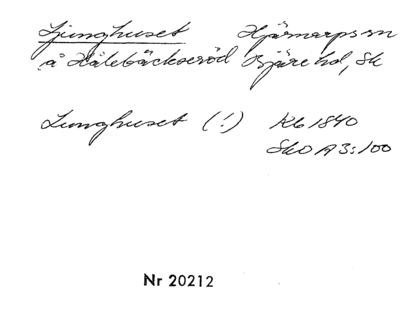 Ljunghuset Hjärnarps sn
å Hålebäckseröd Bjäre hd, Sk
Lunghuset (!) Kb 1840
SkO A3:100
Nr 20212